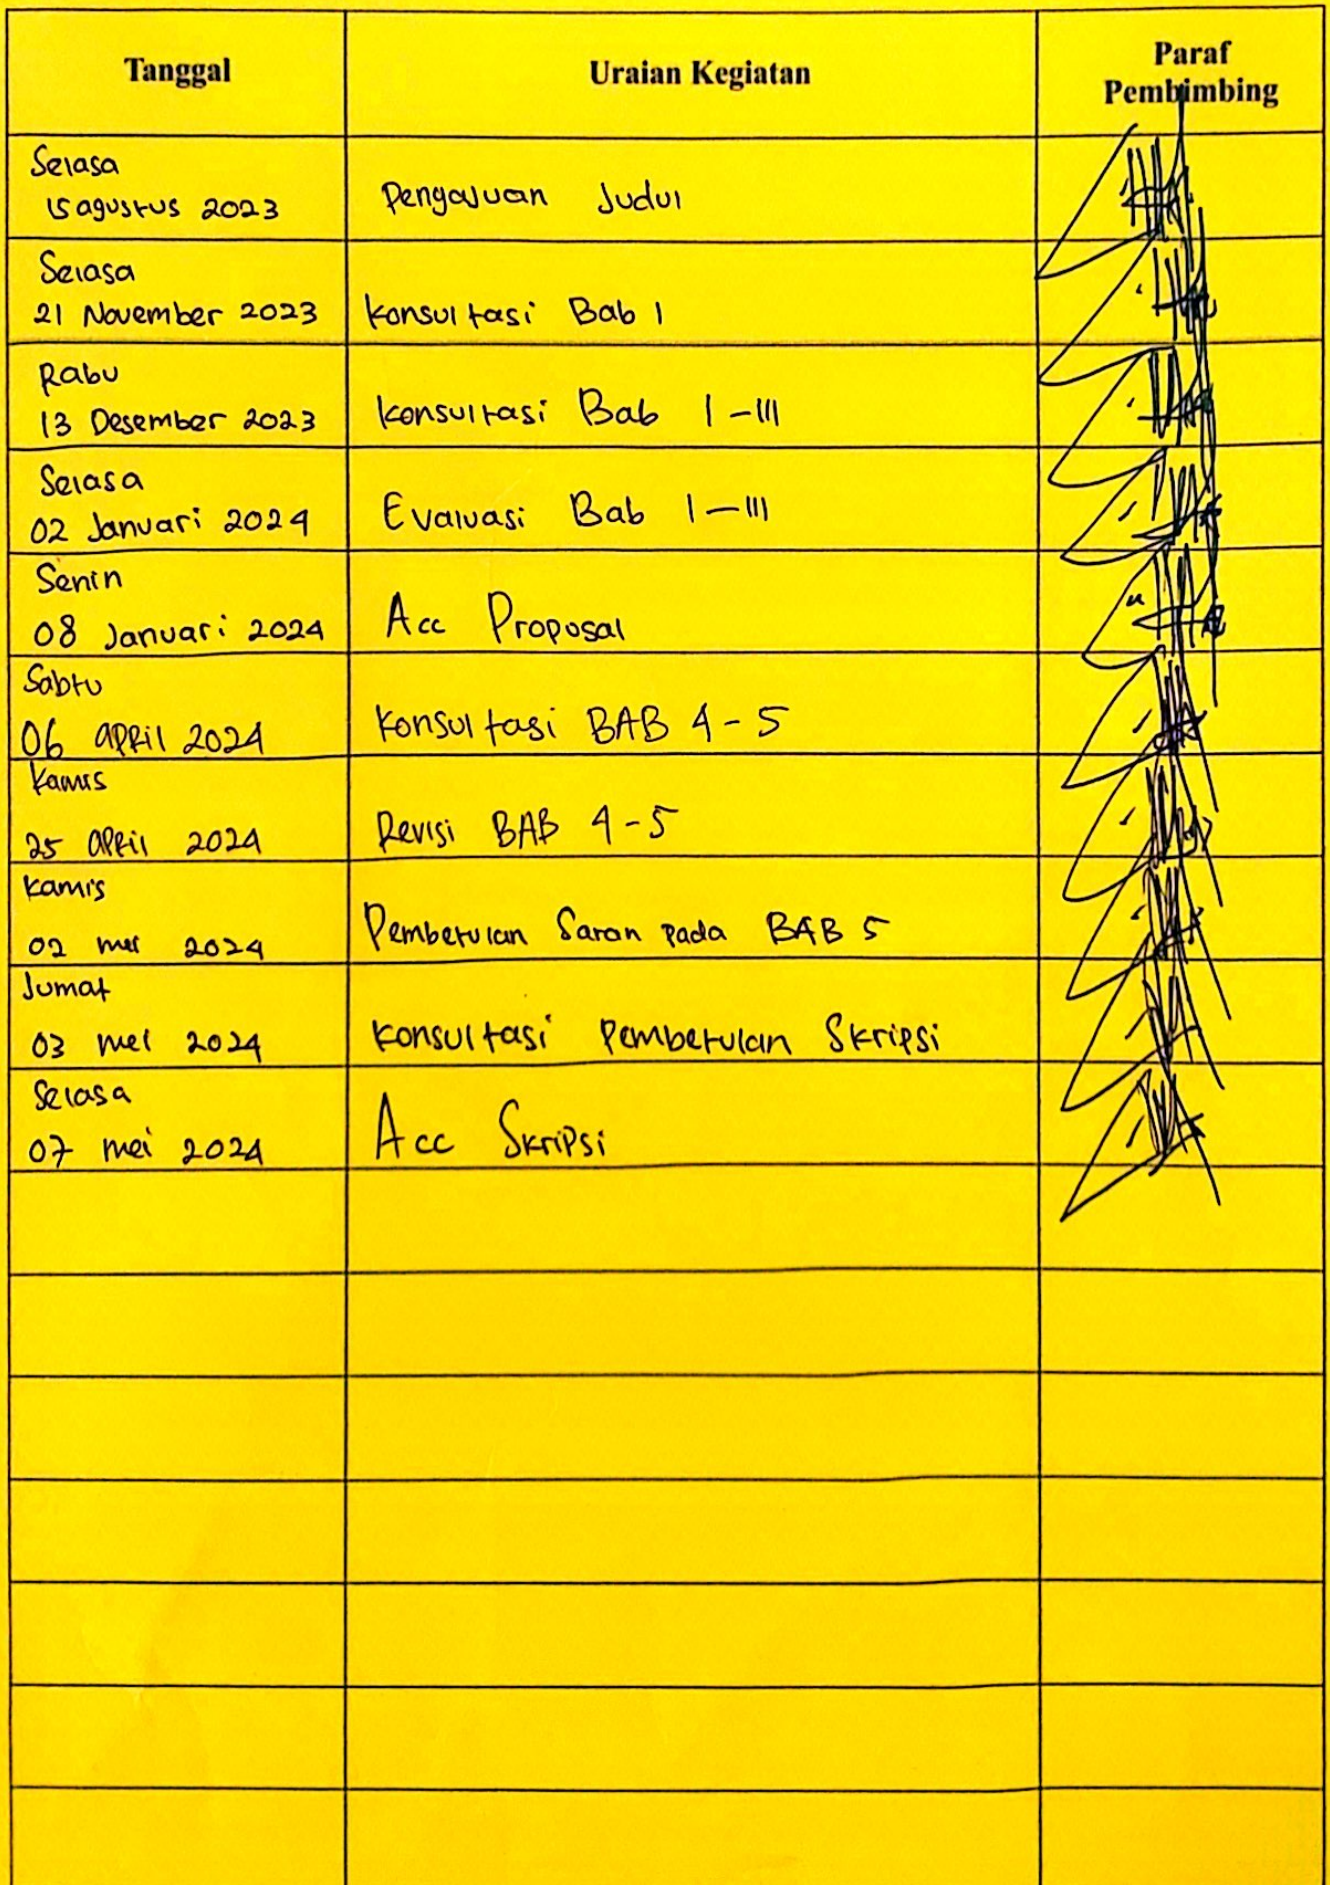 Tanggal
Uraian Kegiatan
Paraf
Pembimbing
Selasa
15 agustus 2023
Pengajuan Judul
Selasa
21 November 2023
Konsultasi Bab I
Rabu
13 Desember 2023
Konsultasi Bab I - III
Selasa
02 Januari 2024
Evaluasi Bab I - III
Senin
08 Januari 2024
Acc Proposal
Sabtu
06 april 2024
Konsultasi BAB 4 - 5
Kamis
25 april 2024
Revisi BAB 4 - 5
Kamis
02 mei 2024
Pembetulan Saran pada BAB 5
Jumat
03 mei 2024
Konsultasi Pembetulan Skripsi
Selasa
07 mei 2024
Acc Skripsi